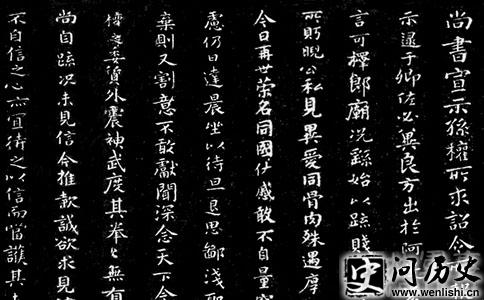 尚書宣示孫權所求詔令
示逮于卿佐必冀良方出於阿
言可擇郎廟況繇始以疏賤
所盱睨公私見異愛同骨肉殊遇厚
今日再世榮名同國休慼敢不自量竊
慮仍日達晨坐以待旦退思鄙淺聖
棄則又割意不敢獻聞深念天下今
權之委質外震神武度其拳〻無有
尚自疏況未見信今推款誠欲求見
不自信之心亦宜待之以信而當護其未
史 问历史
www.wenlishi.cn